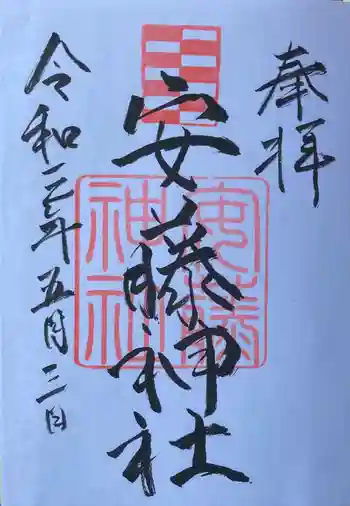 奉拝
安藤神社
安藤神社
令和二年五月三日